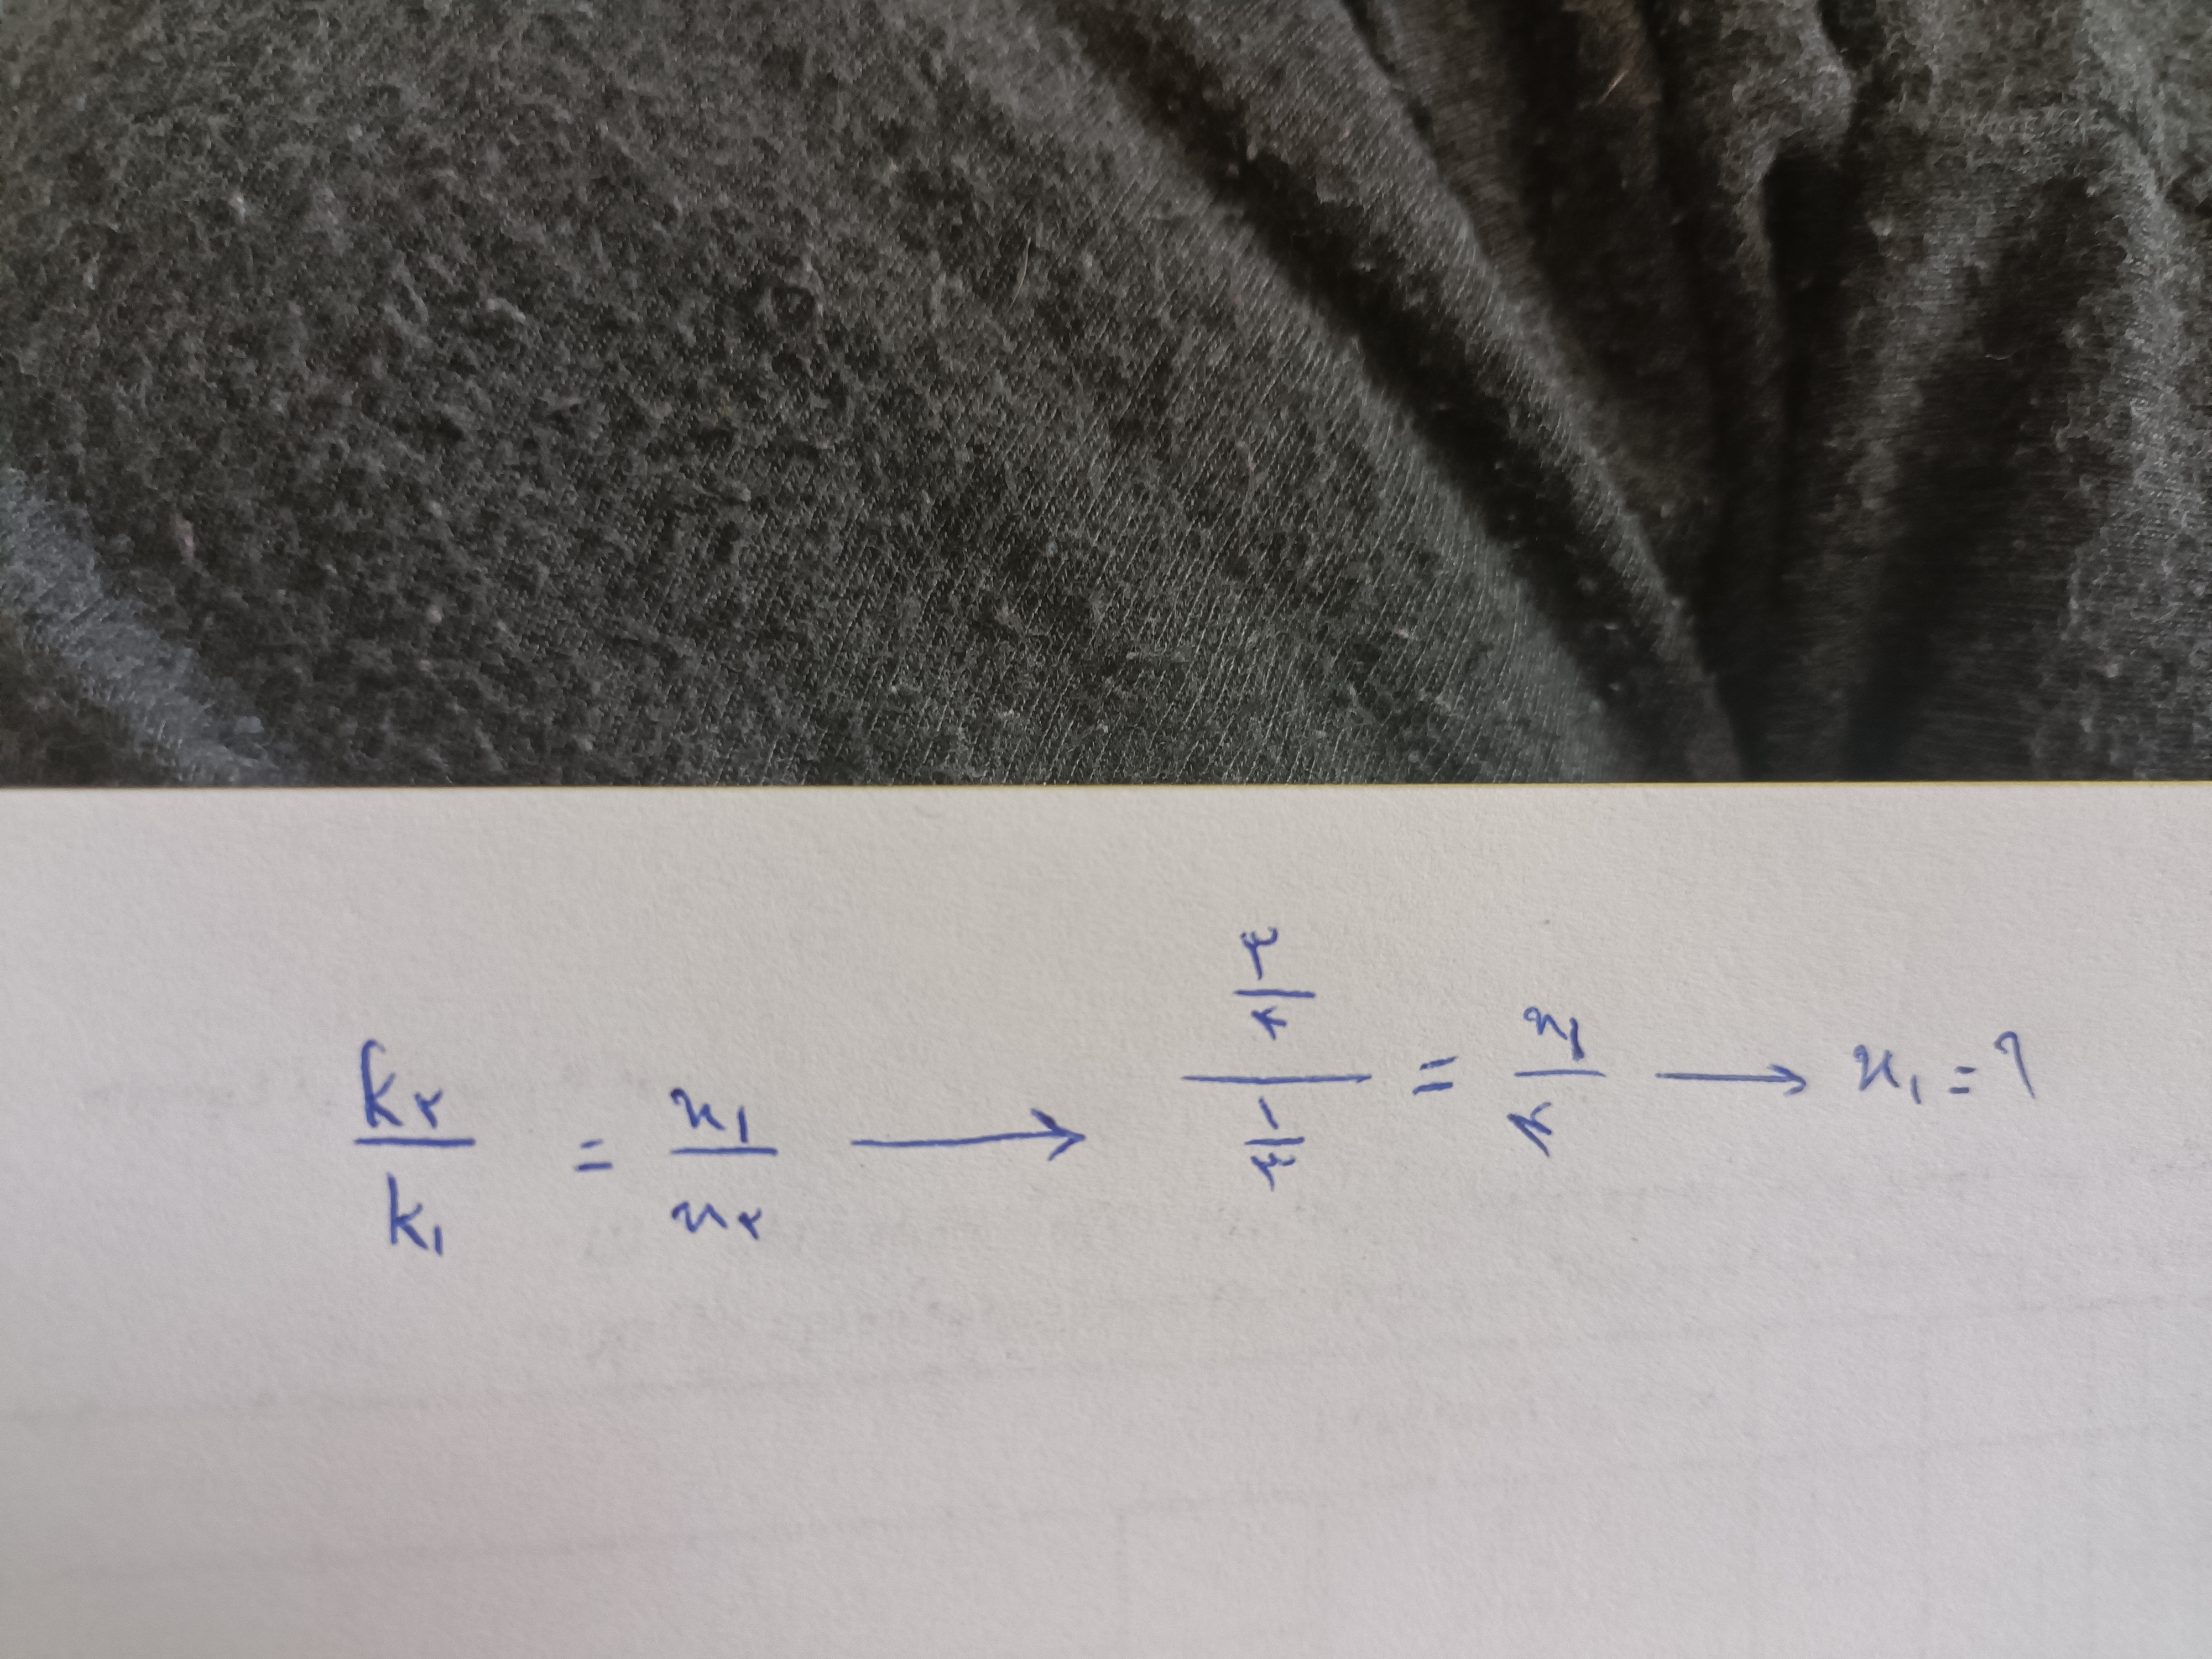 k۲/k۱ = x۱/x۲ → (۳/۲)/(۱/۳) = x۱/۲ → x۱ = ?